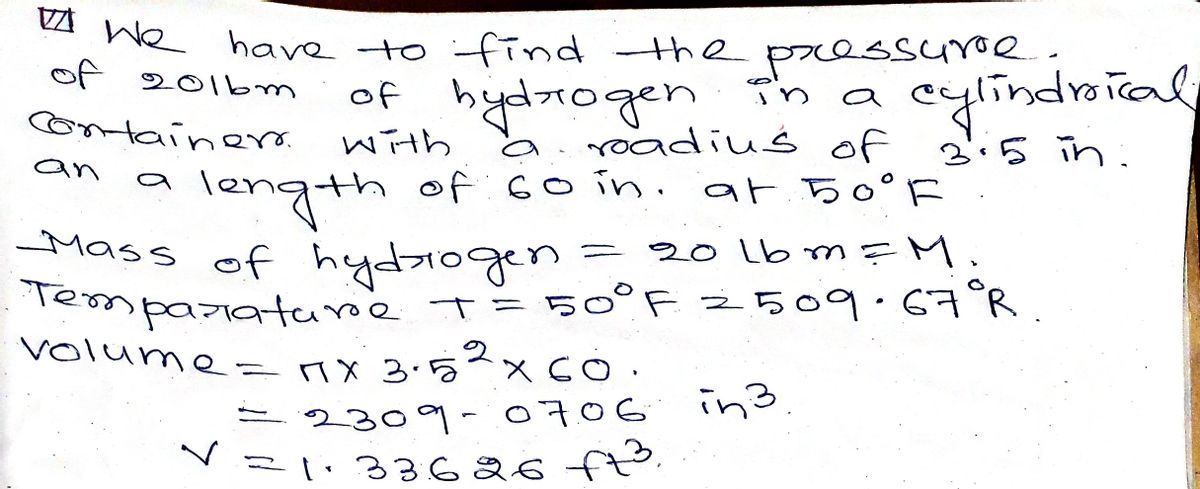 7) We have to find the pressure.
of 20lbm of hydrogen in a cylindrical
Container with a radius of 3.5 in.
an a length of 60 in. at 50°F
Mass of hydrogen = 20 lbm = M.
Temparature T = 50°F = 509.67°R.
Volume = π x 3.5² x 60.
= 2309-0706 in3.
V = 1.33626 ft3.